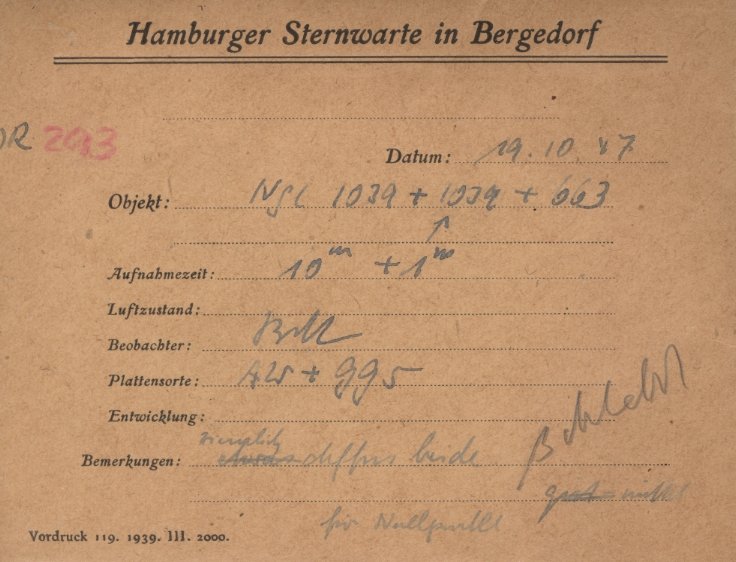 Hamburger Sternwarte in Bergedorf
293
Datum: 19.10.47
Objekt: NGC 1039 + 1039 + 663
Aufnahmezeit: 10m + 1m
Luftzustand:
Beobachter:
Plattensorte: + 995
Entwicklung:
ziemlich
Bemerkungen: etwas diffus beide
für Nullpunkt
Vordruck 119. 1939. III. 2000.